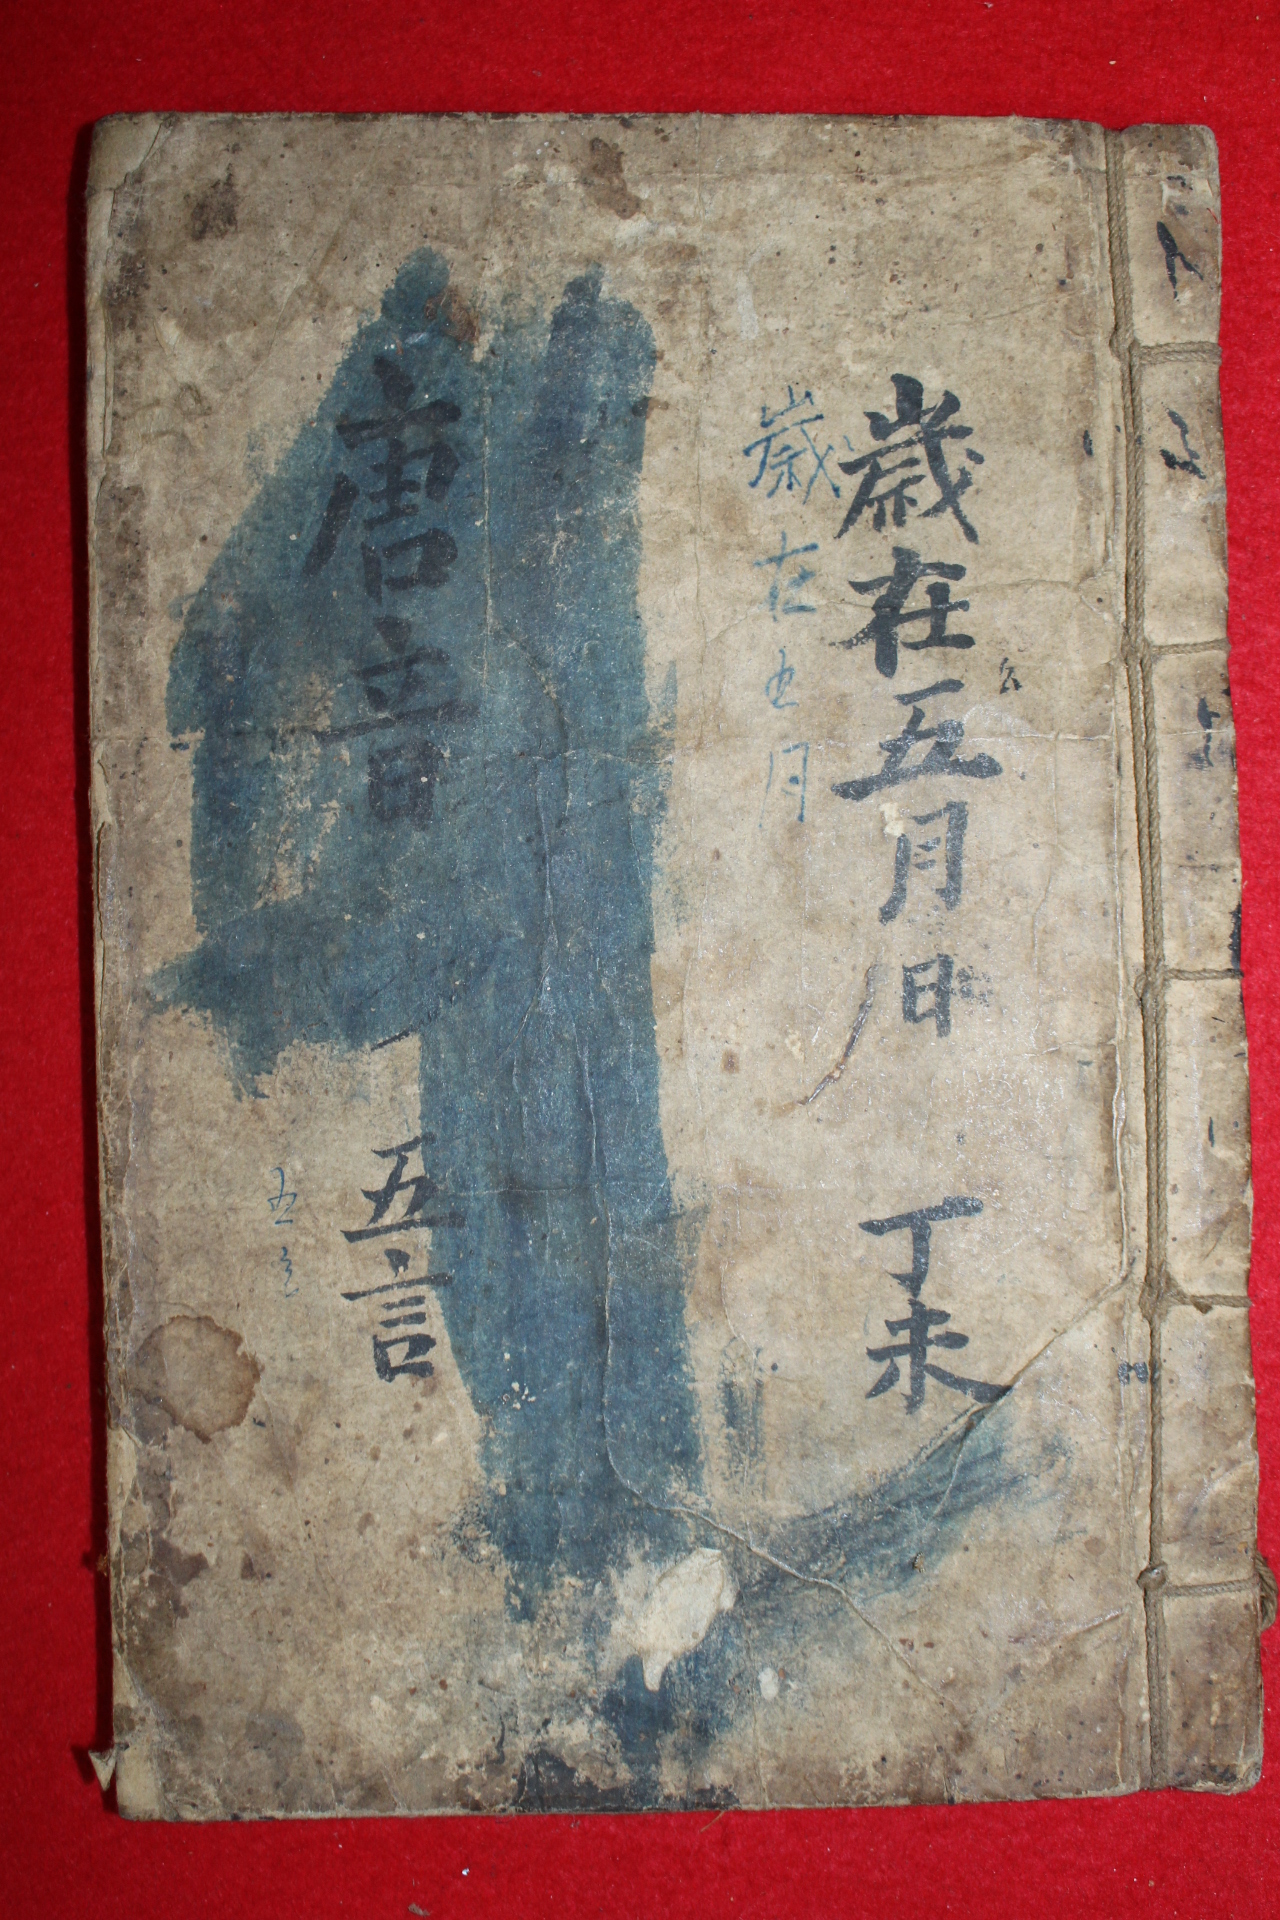 歲在五月日 丁未
歲在五月
唐音 五言
五言